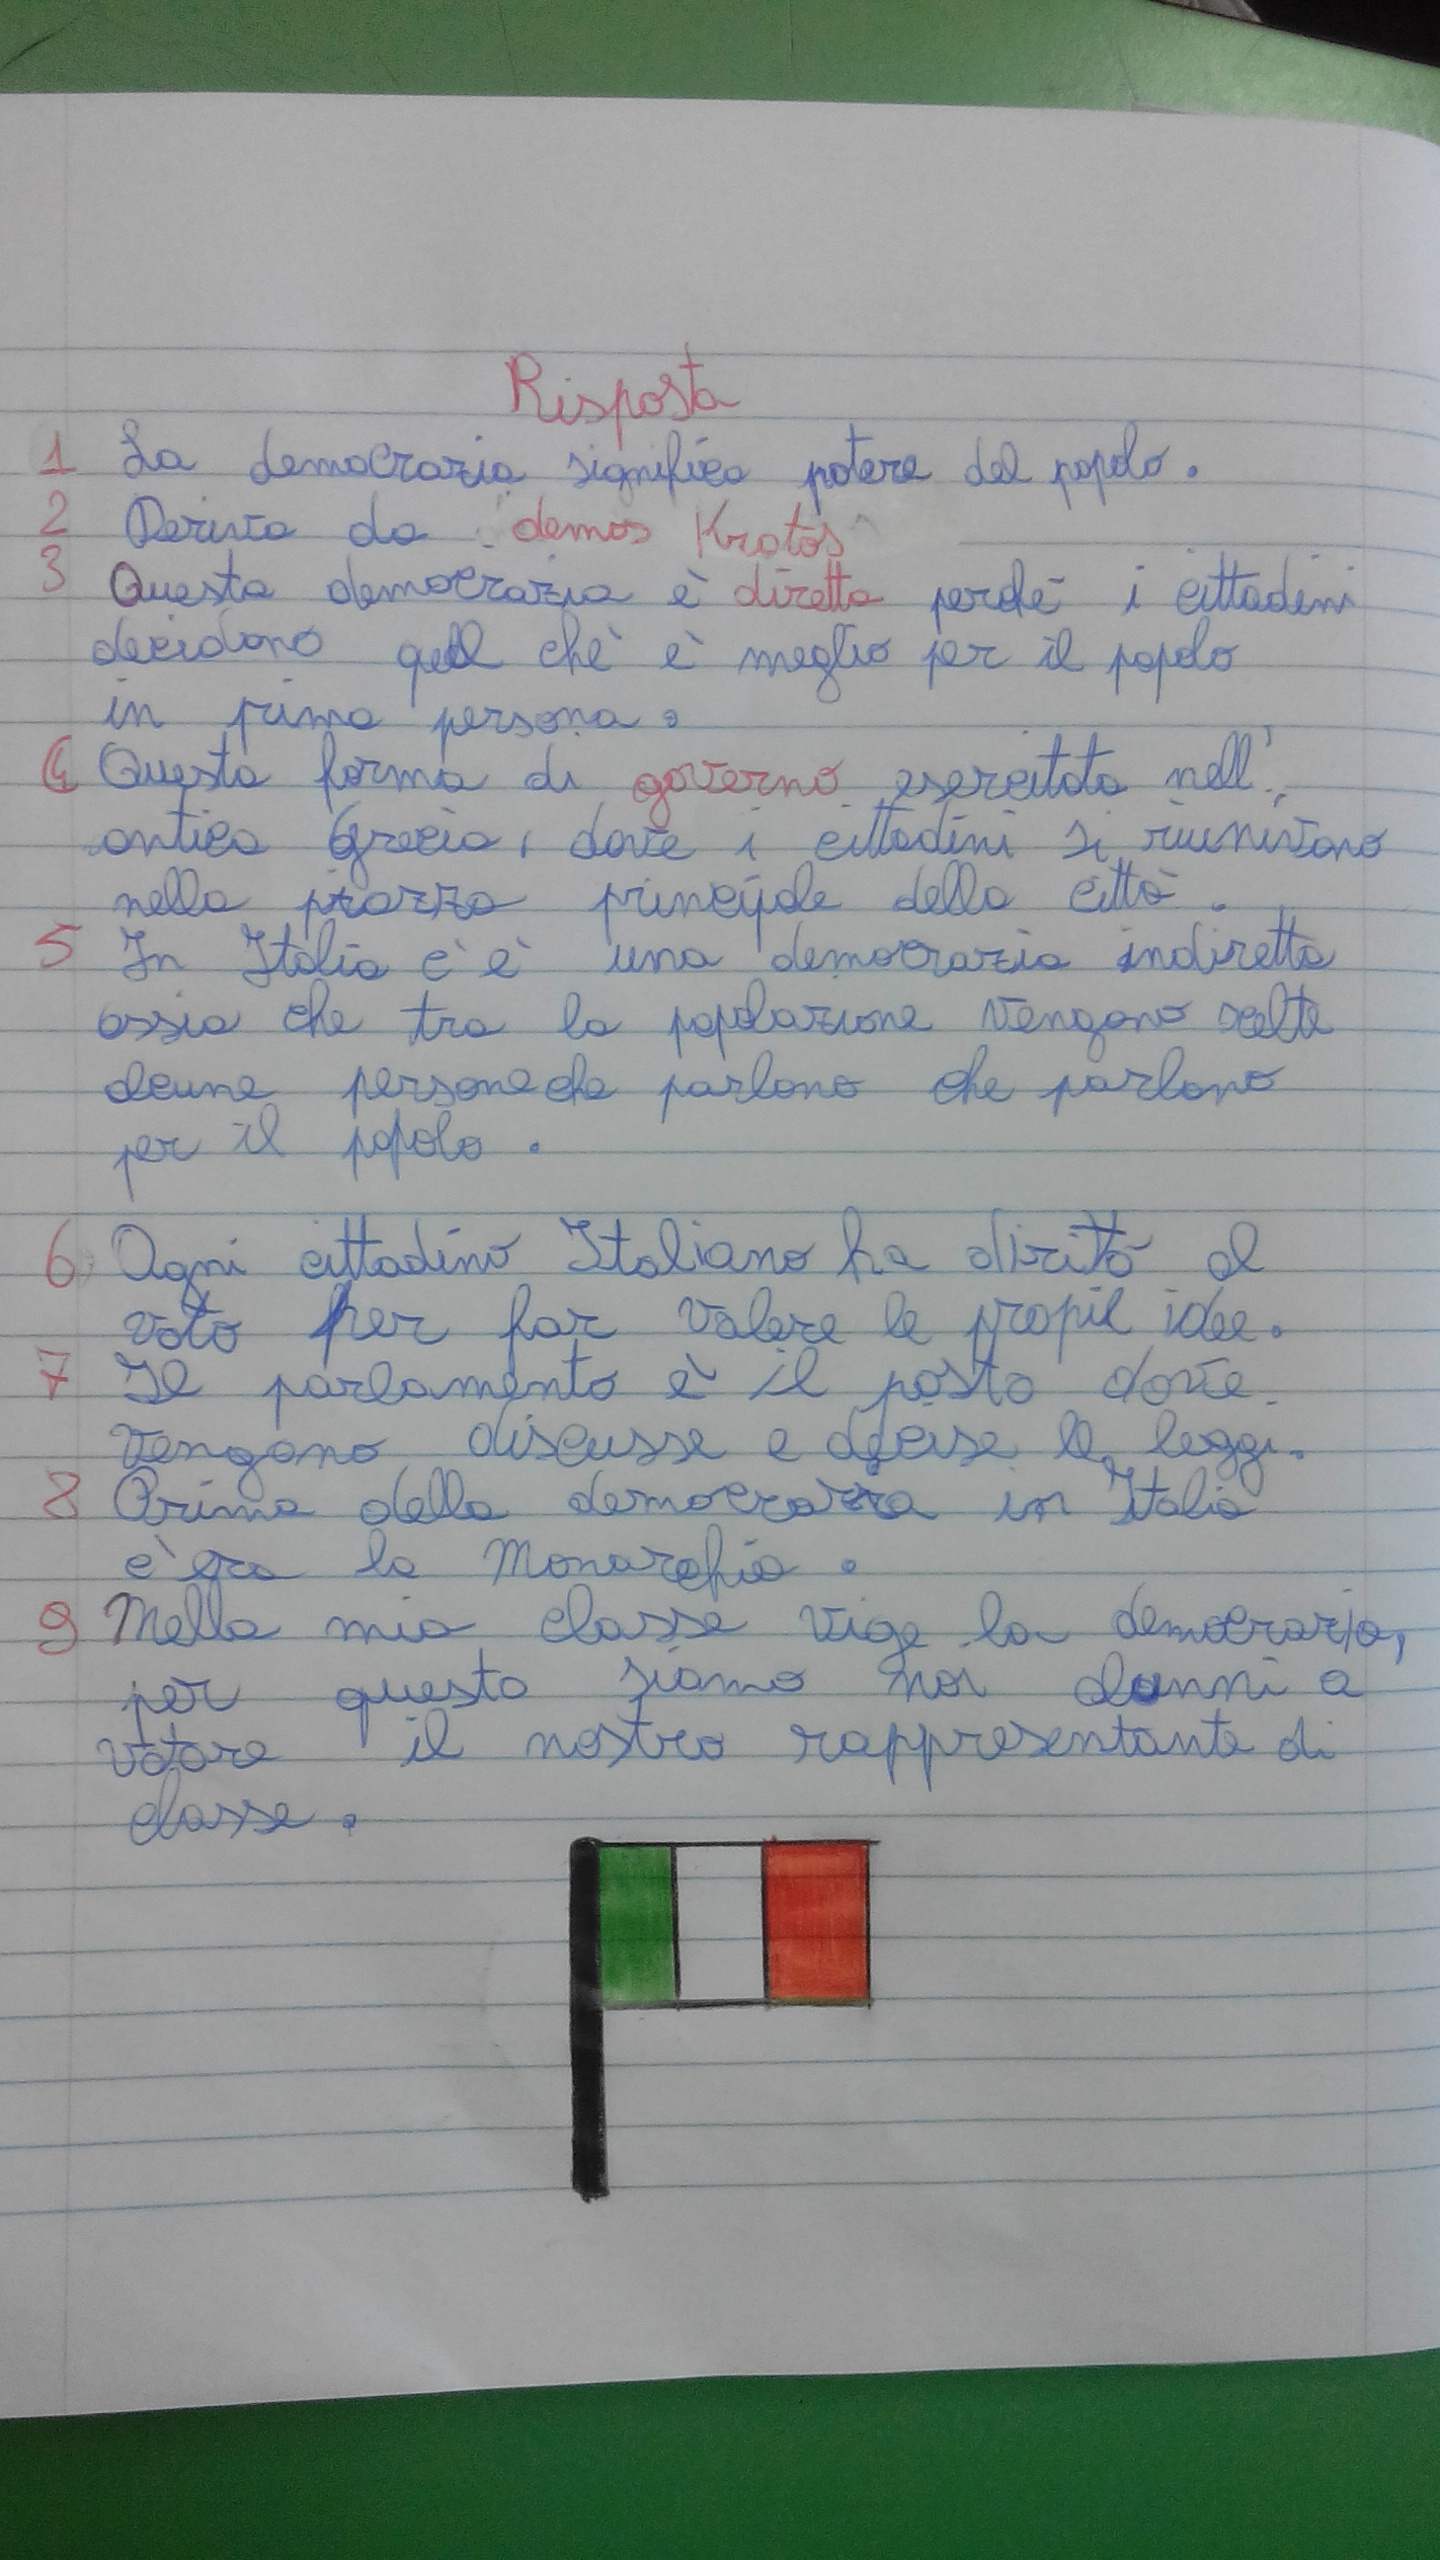 Risposta
1 La democrazia significa potere del popolo.
2 Deriva da demos Kratos
3 Questa democrazia è diretta perché i cittadini
decidono quel chè è meglio per il popolo
in prima persona.
4 Questa forma di governo esercitata nell'
antica Grecia, dove i cittadini si riunivano
nella piazza principale della città.
5 In Italia c'è una democrazia indiretta
ossia che tra la popolazione vengono scelte
alcune persone che parlano che parlano
per il popolo.
6 Ogni cittadino Italiano ha diritto al
voto per far valere le propie idee.
7 Il parlamento è il posto dove
vengono discusse e decise le leggi.
8 Prima della democrazia in Italia
c'era la Monarchia.
9 Nella mia classe vige la democrazia,
per questo siamo noi alunni a
votare il nostro rappresentante di
classe.